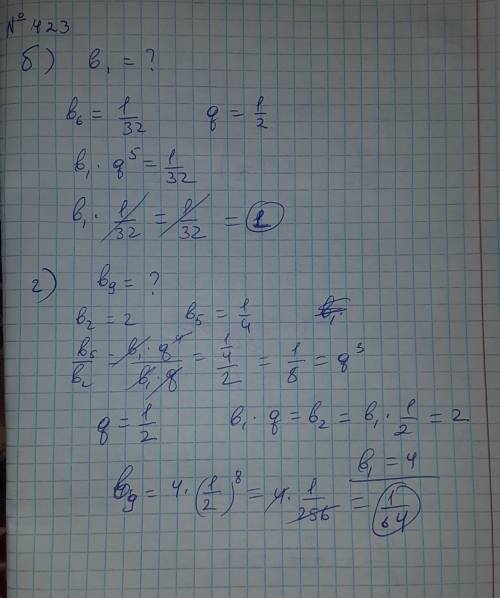 № 423
б) в₁ = ?
в₆ = 1/32 q = 1/2
в₁ · q⁵ = 1/32
в₁ · 1/32 = 1/32 = 1
г) в₉ = ?
в₂ = 2 в₅ = 1/4 в₁.
в₅/в₂ = в₁ · q⁴/в₁ · q = 1/4/2 = 1/8 = q³
q = 1/2 в₁ · q = в₂ = в₁ · 1/2 = 2
в₁ = 4
в₉ = 4 · (1/2)⁸ = 4 · 1/256 = 1/64